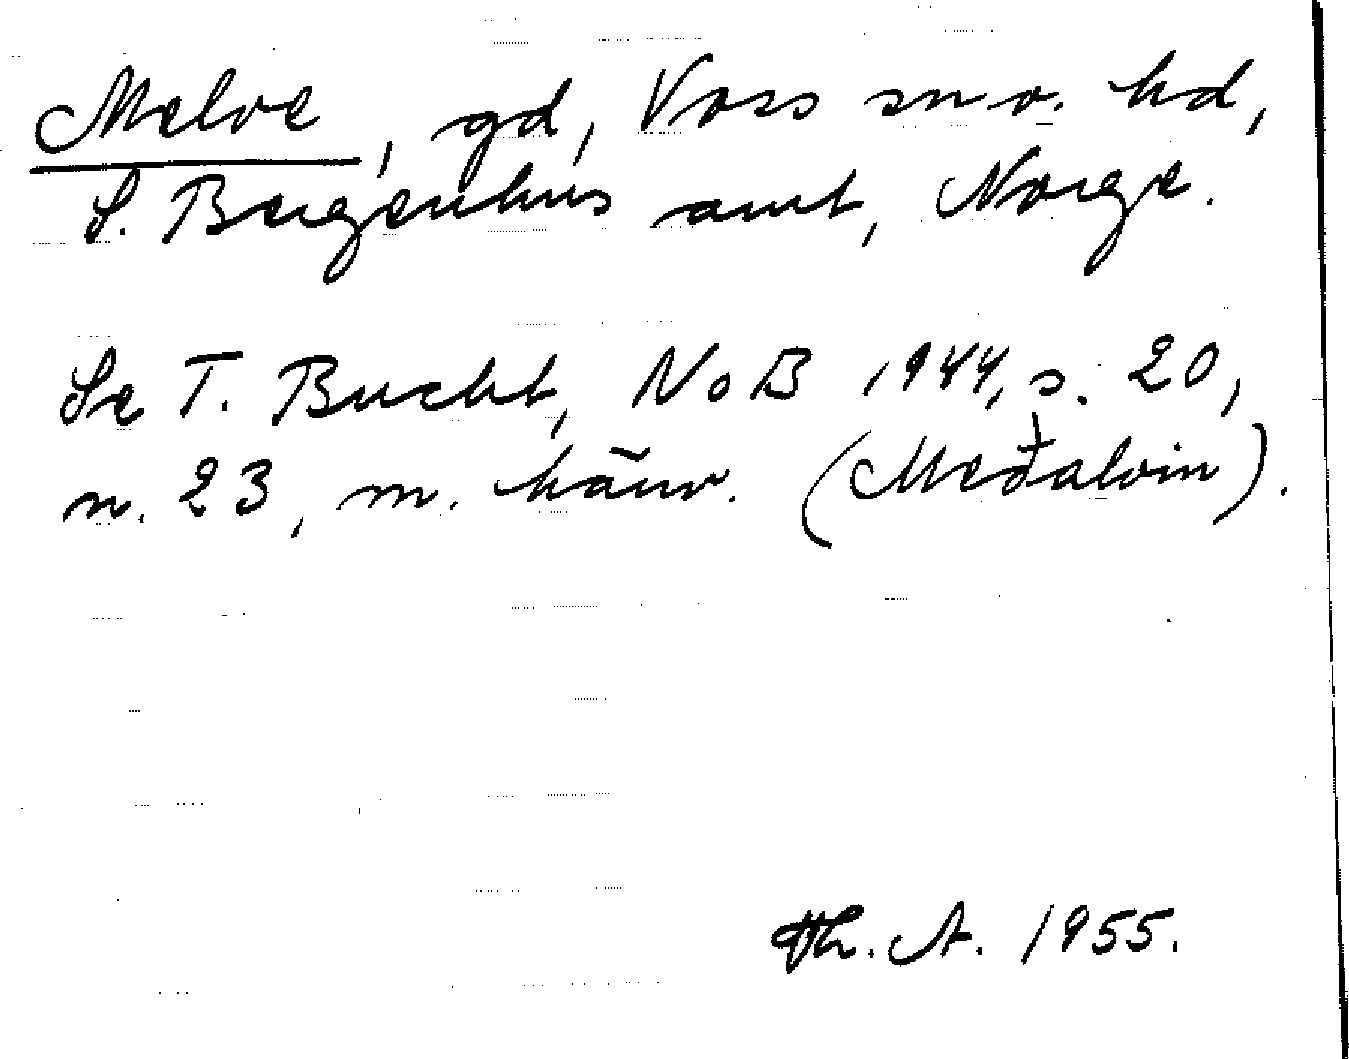 Melve, gd, Voss sn o. hd,
S. Bergenhus amt, Norge.
Se T. Bucht, NoB 1944, s. 20,
n. 23, m. hänv. (Međalvin).
Th. A. 1955.